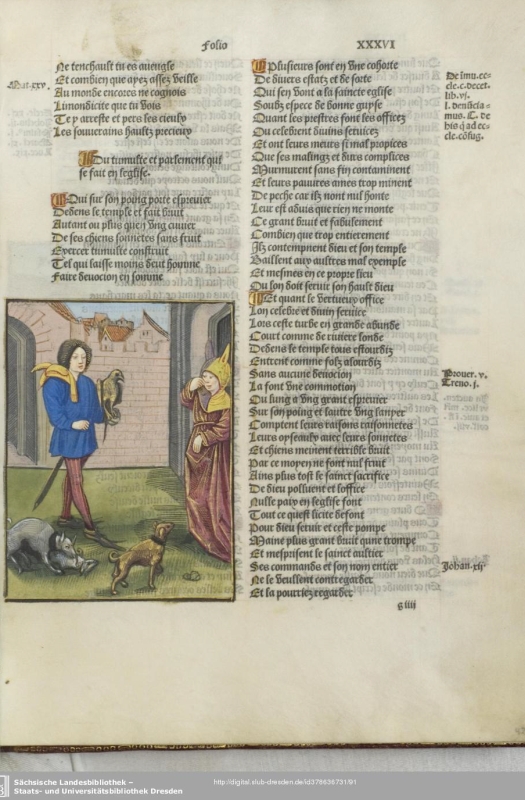 Folio
XXXVI
Ne tenchault tu es aueugle
Et combien que ayez assez veille
Mat.xxv.
Au monde encores ne cognois
Limondicite que tu vois
Te y arreste et pers les cieulx
Les souuerains haultz precieux
Du tumulte et parlement qui
se fait en leglise.
Qui sur son poing porte espreuier
Dedens le temple et fait bruit
Autant ou plus quen vng viuier
De ses chiens sonnetes sans fruit
Exercer tumulte construit
Tel qui laisse moins deut homme
Faire deuocion en somme
Plusieurs sont en vne cohorte
De diuers estatz et de sorte
Qui sen vont a la saincte eglise
Soubz espece de bonne guyse
Quant les prestres font les offices
Ou celebrent diuins seruices
Et ont leurs meurs si mal propices
Que ses malingz et durs complices
Murmurent sans fin contaminent
Et leurs pauures ames trop minent
De peche car ilz nont nul honte
Leur est aduis que rien ne monte
Ce grant bruit et fabulement
Combien que trop entierement
Ilz contempnent dieu et son temple
Baillent aux aultres mal exemple
Et mesmes en ce propre lieu
Ou lon doit seruir son hault dieu
Et quant le vertueux office
Lon celebre et diuin seruice
Lors ceste turbe en grande abunde
Court comme de riuiere londe
Dedens le temple tous estourdiz
Entrent comme folz alourdiz
Sans aucune deuocion
La font vne commotion
Ou lung a vng grant espreuier
Sur son poing et lautre vng
Comptent leurs raisons raisonnetes
Leurs oyseaulx auec leurs sonnetes
Et chiens meinent terrible bruit
Par ce moyen ne font nul fruit
Ains plus tost le sainct sacrifice
De dieu polluent et loffice
Nulle paix en leglise sont
Tout ce quest licite defont
Pour dieu seruir et ceste pompe
Maine plus grant bruit qune trompe
Et mesprisent le sainct aultier
Ses commands et son nom entier
Ne le veullent contregarder
Et la pourriez regarder
g iiii
De imu.ec-
cle.c.decet.
lib.vi.
mus. C. de
his q ad ec-
cle.cōfug.
Prouer. v.
Treno. j.
Johan.xij
Sächsische Landesbibliothek –
Staats- und Universitätsbibliothek Dresden
http://digital.slub-dresden.de/id378636731/91